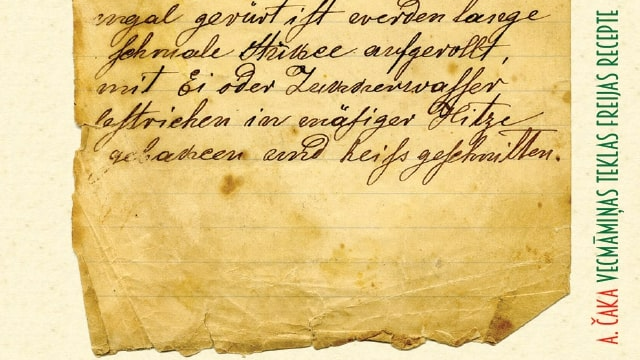 gerürt ist werden lange
schmale Stükee aufgerollt,
mit Ei oder Zukkerwasser
bestrichen in mäsiger Hitze
gebakeen und heiss geschnitten.
A. ČAKA VECMĀMIŅAS TEKLAS FREIJAS RECEPTE